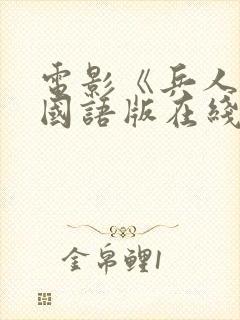 電影《兵人
國語版在綫
金帛鲤1